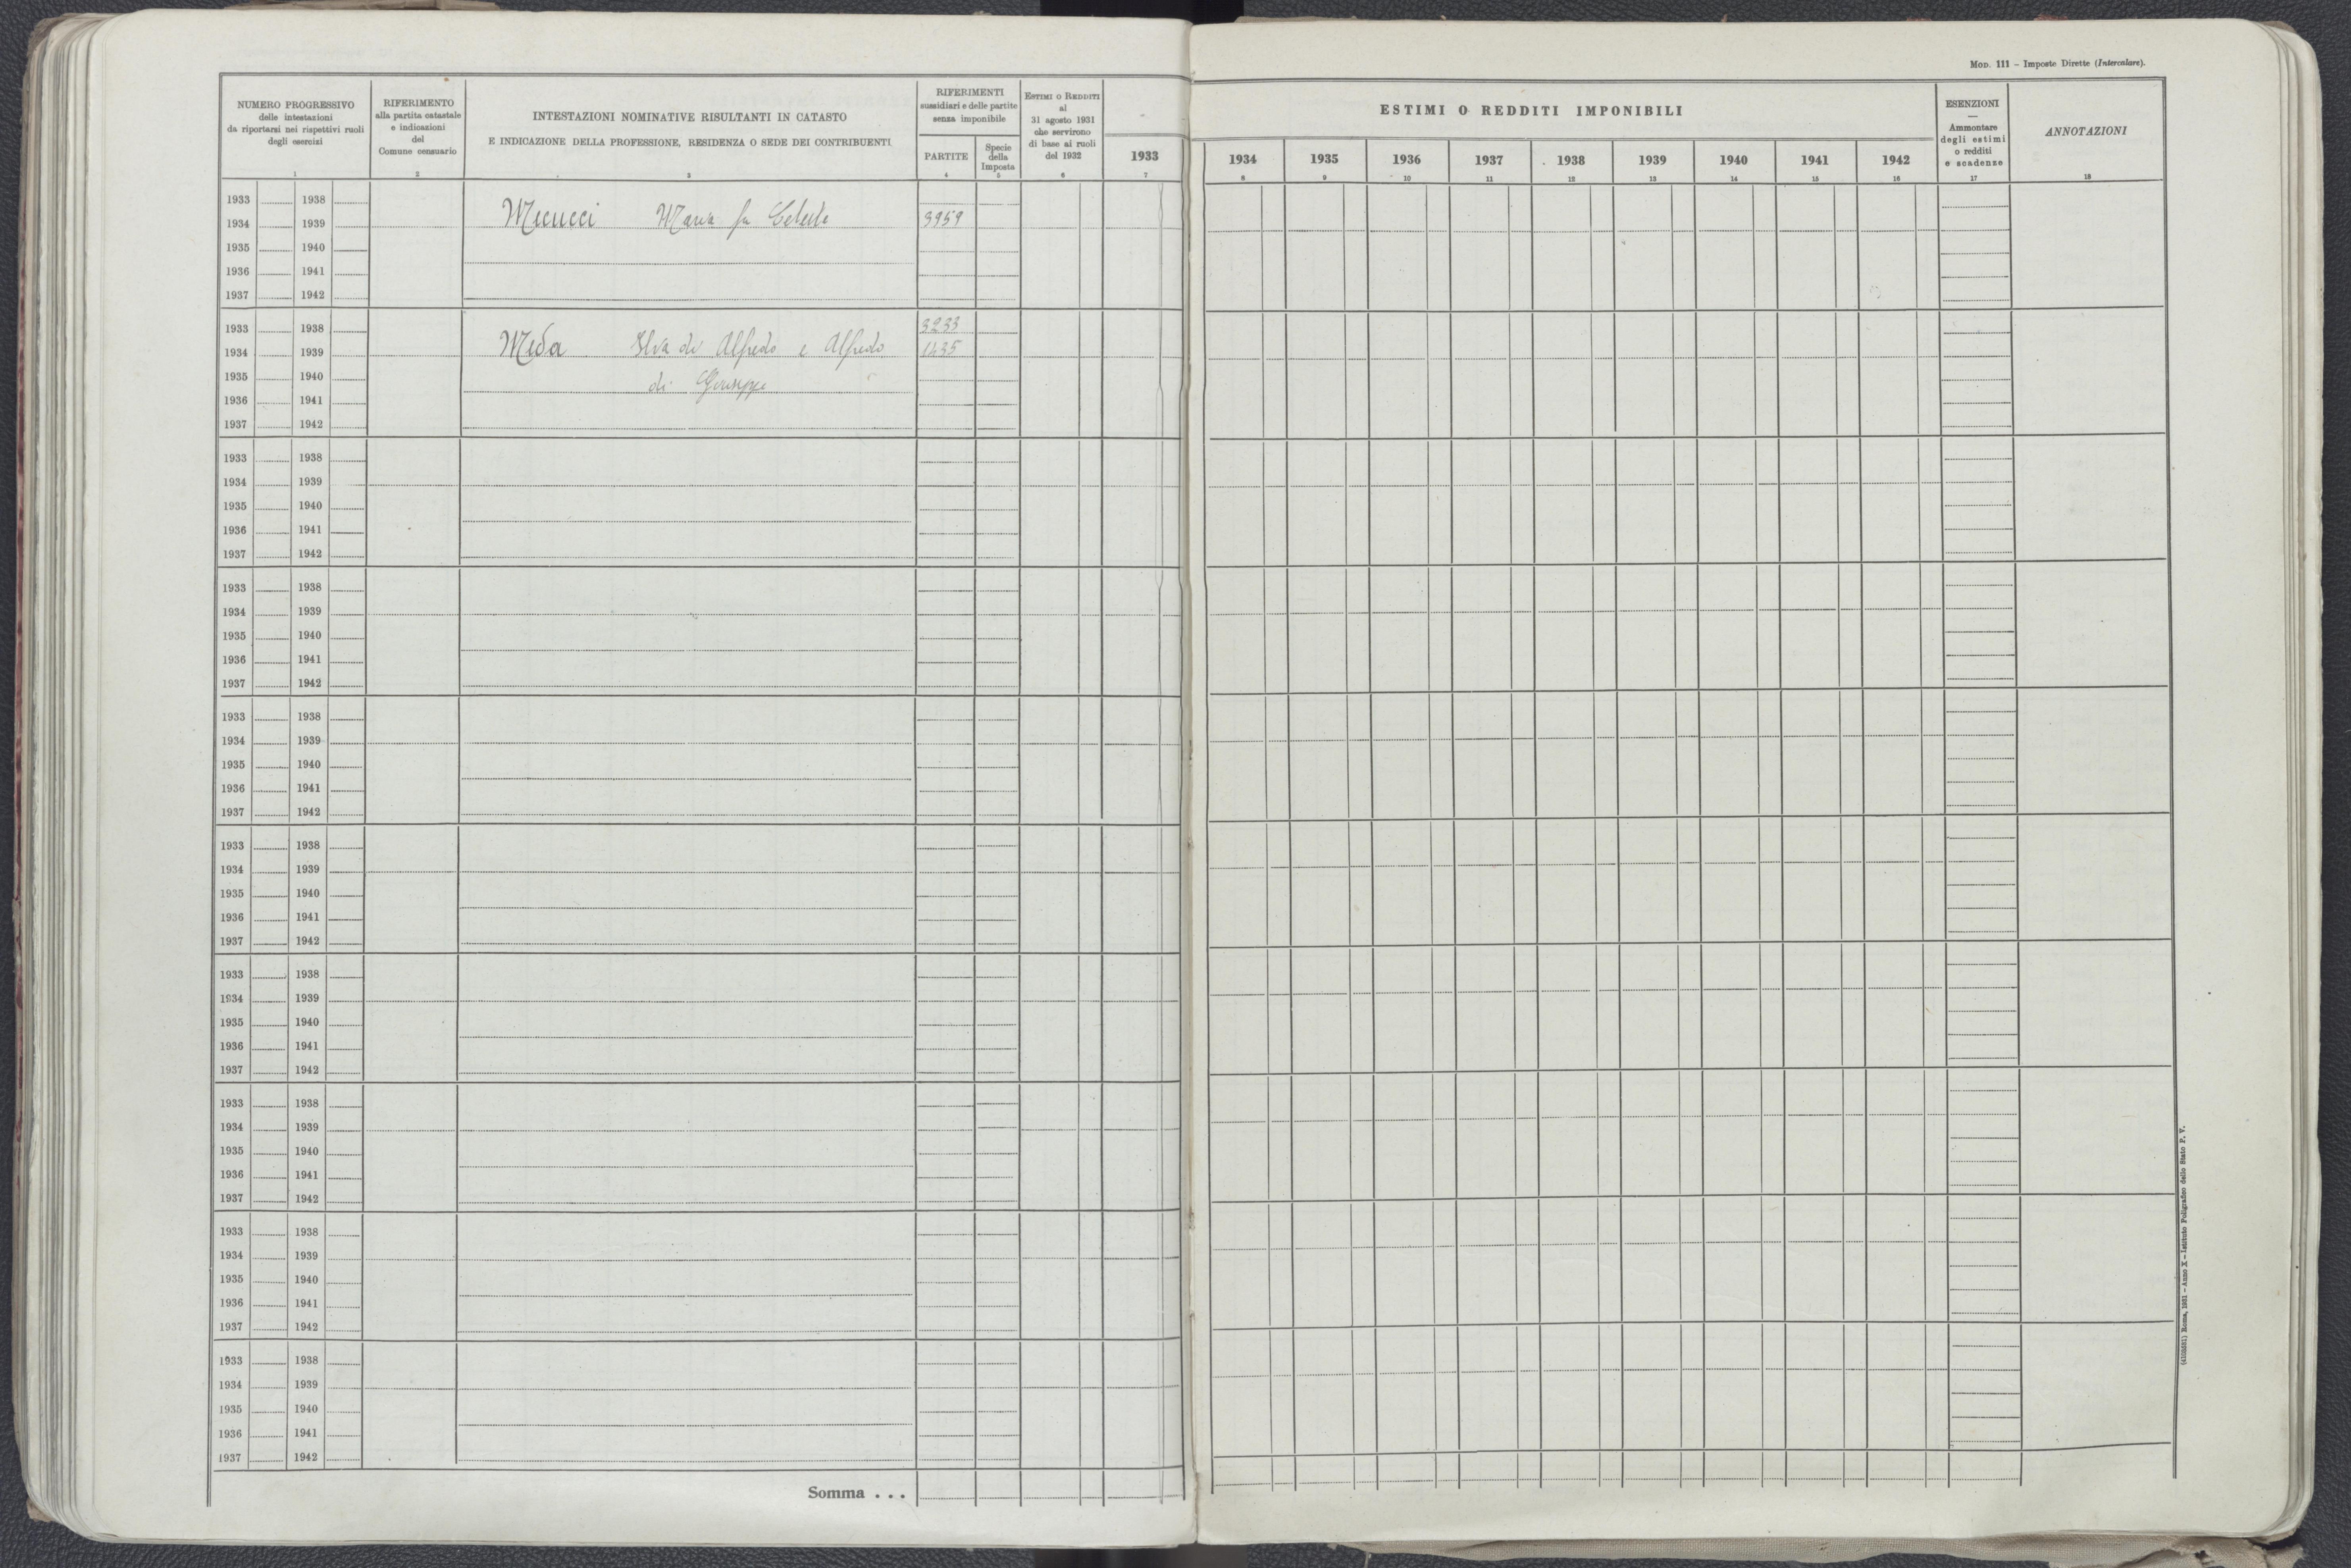 MOD. 111 – Imposte Dirette (Intercalare).
NUMERO PROGRESSIVO
delle intestazioni
da riportarsi nei rispettivi ruoli
degli esercizi
1
RIFERIMENTO
alla partita catastale
e indicazioni
del
Comune censuario
2
INTESTAZIONI NOMINATIVE RISULTANTI IN CATASTO
E INDICAZIONE DELLA PROFESSIONE, RESIDENZA O SEDE DEI CONTRIBUENTI
3
RIFERIMENTI
sussidiari e delle partite
senza imponibile
PARTITE
4
Specie
della
Imposta
5
ESTIMI O REDDITI
al
31 agosto 1931
che servirono
di base ai ruoli
del 1932
6
1933
7
ESTIMI O REDDITI IMPONIBILI
1934 1935 1936 1937 1938 1939 1940 1941 1942
8 9 10 11 12 13 14 15 16
ESENZIONI
—
Ammontare
degli estimi
o redditi
e scadenze
17
ANNOTAZIONI
18
1933 1938
1934 1939 Mecucci Maria fu Celeste 3959
1935 1940
1936 1941
1937 1942
1933 1938 3233
1934 1939 Meda Elva di Alfredo e Alfredo 1435
1935 1940 di Giuseppe
1936 1941
1937 1942
1933 1938
1934 1939
1935 1940
1936 1941
1937 1942
1933 1938
1934 1939
1935 1940
1936 1941
1937 1942
1933 1938
1934 1939
1935 1940
1936 1941
1937 1942
1933 1938
1934 1939
1935 1940
1936 1941
1937 1942
1933 1938
1934 1939
1935 1940
1936 1941
1937 1942
1933 1938
1934 1939
1935 1940
1936 1941
1937 1942
1933 1938
1934 1939
1935 1940
1936 1941
1937 1942
1933 1938
1934 1939
1935 1940
1936 1941
1937 1942
Somma . . .
Roma, 1931 – Anno X – Istituto Poligrafico dello Stato P. V.